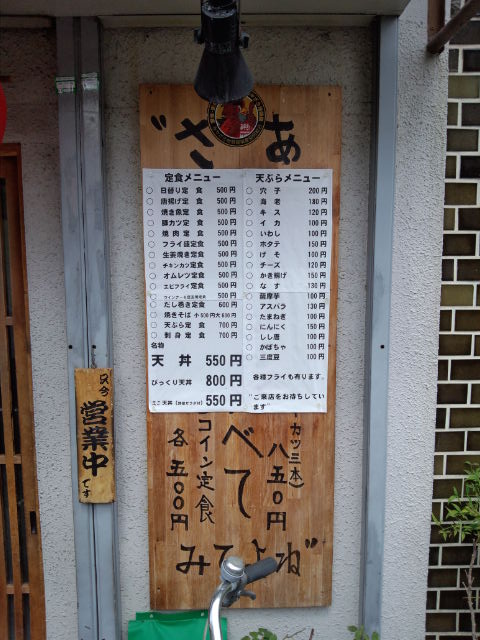 "さあ
定食メニュー
○ 日替り定食 500円
○ 唐揚げ定食 500円
○ 焼き魚定食 500円
○ 豚カツ定食 500円
○ 焼肉定食 500円
○ フライ盛定食 500円
○ 生姜焼き定食 500円
○ チキンカツ定食 500円
○ オムレツ定食 500円
○ エビフライ定食 500円
500円
○ だし巻き定食 600円
○ 焼きそば 小500円大600円
○ 天ぷら定食 700円
○ 刺身定食 700円
名物
天丼 550円
びっくり天丼 800円
ミニ天丼 550円
天ぷらメニュー
○ 穴子 200円
○ 海老 180円
○ キス 120円
○ イカ 100円
○ いわし 100円
○ ホタテ 150円
○ げそ 100円
○ チーズ 120円
○ かき揚げ 150円
○ なす 130円
○ 薩摩芋 100円
○ アスパラ 130円
○ たまねぎ 100円
○ にんにく 150円
○ しし唐 100円
○ かぼちゃ 100円
○ 三度豆 100円
各種フライも有ります。
"ご来店をお待ちしてい
ます"
カツ三本)
八五〇円
べて
コイン定食
各五〇〇円
みてよね"
只今
営業中
です